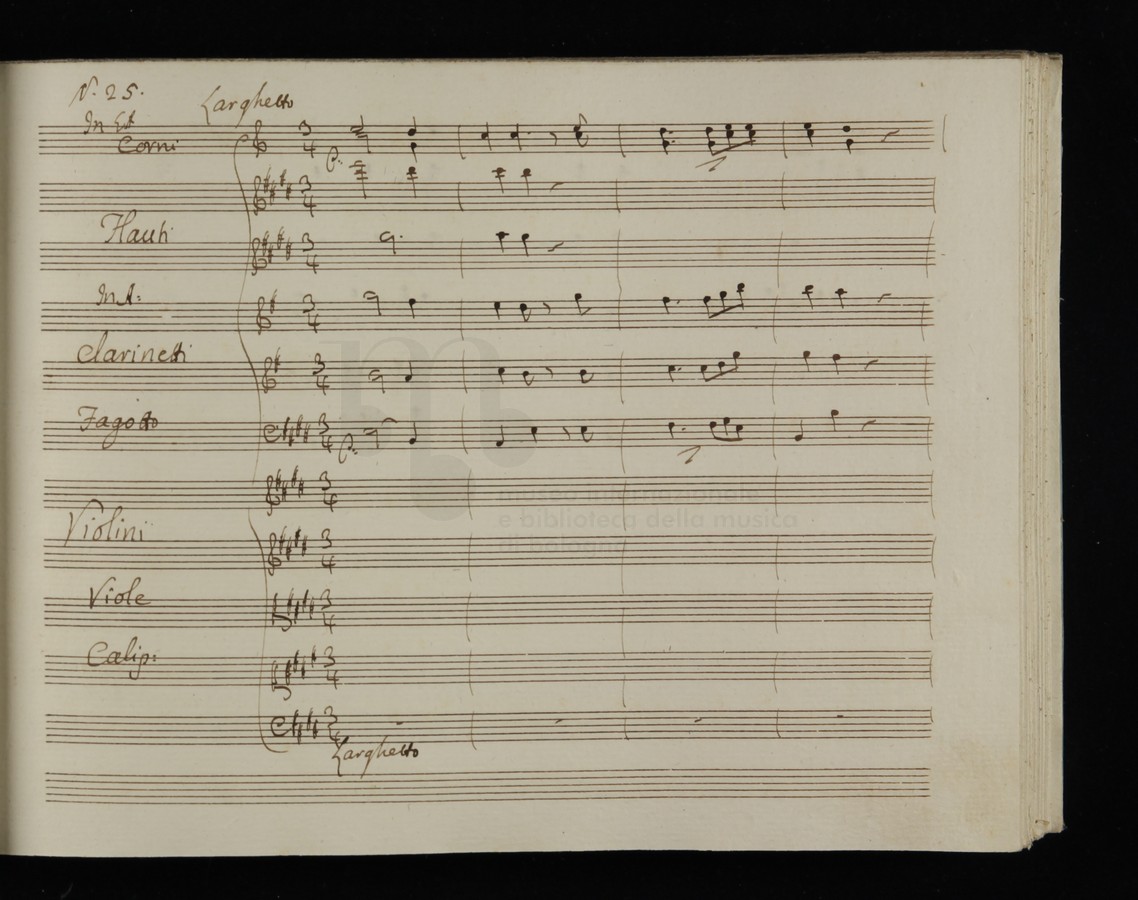 N. 25.
Larghetto
Corni
Flauti
In A:
Clarinetti
Fagotto
Violini
Viole
Calip:
Larghetto
museo internazionale
e biblioteca della musica
di bologna